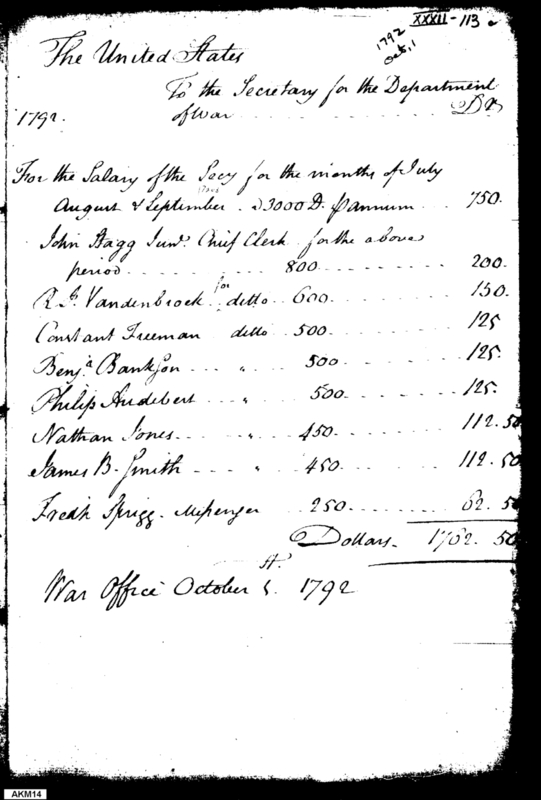 XXXII-113
1792
Oct. 1
The United States
To the Secretary for the Department
1792. of War . . . . . . . . . . Dr
For the Salary of the Secy for the months of July
August & September . @ 3000 D. ⅌ annum . . . . 750.
John Stagg Junr. Chief Clerk for the above
period . . . . . . . . . 800 . . . . . . . . 200.
R. J. Vandenbroek for ditto 600 . . . . . . . 150.
Constant Freeman ditto 500 . . . . . . . 125
Benja Bankson . . . " 500 . . . . . . . 125.
Philip Audebert . . . " 500 . . . . . . . 125.
Nathan Jones . . . . " 450 . . . . . . . 112.50
James B. Smith . . . " 450 . . . . . . . 112.50
Fredk Sprigg Messenger . . 250 . . . . . . 62.50
Dollars. 1762.50
War Office October 1st. 1792
AKM14